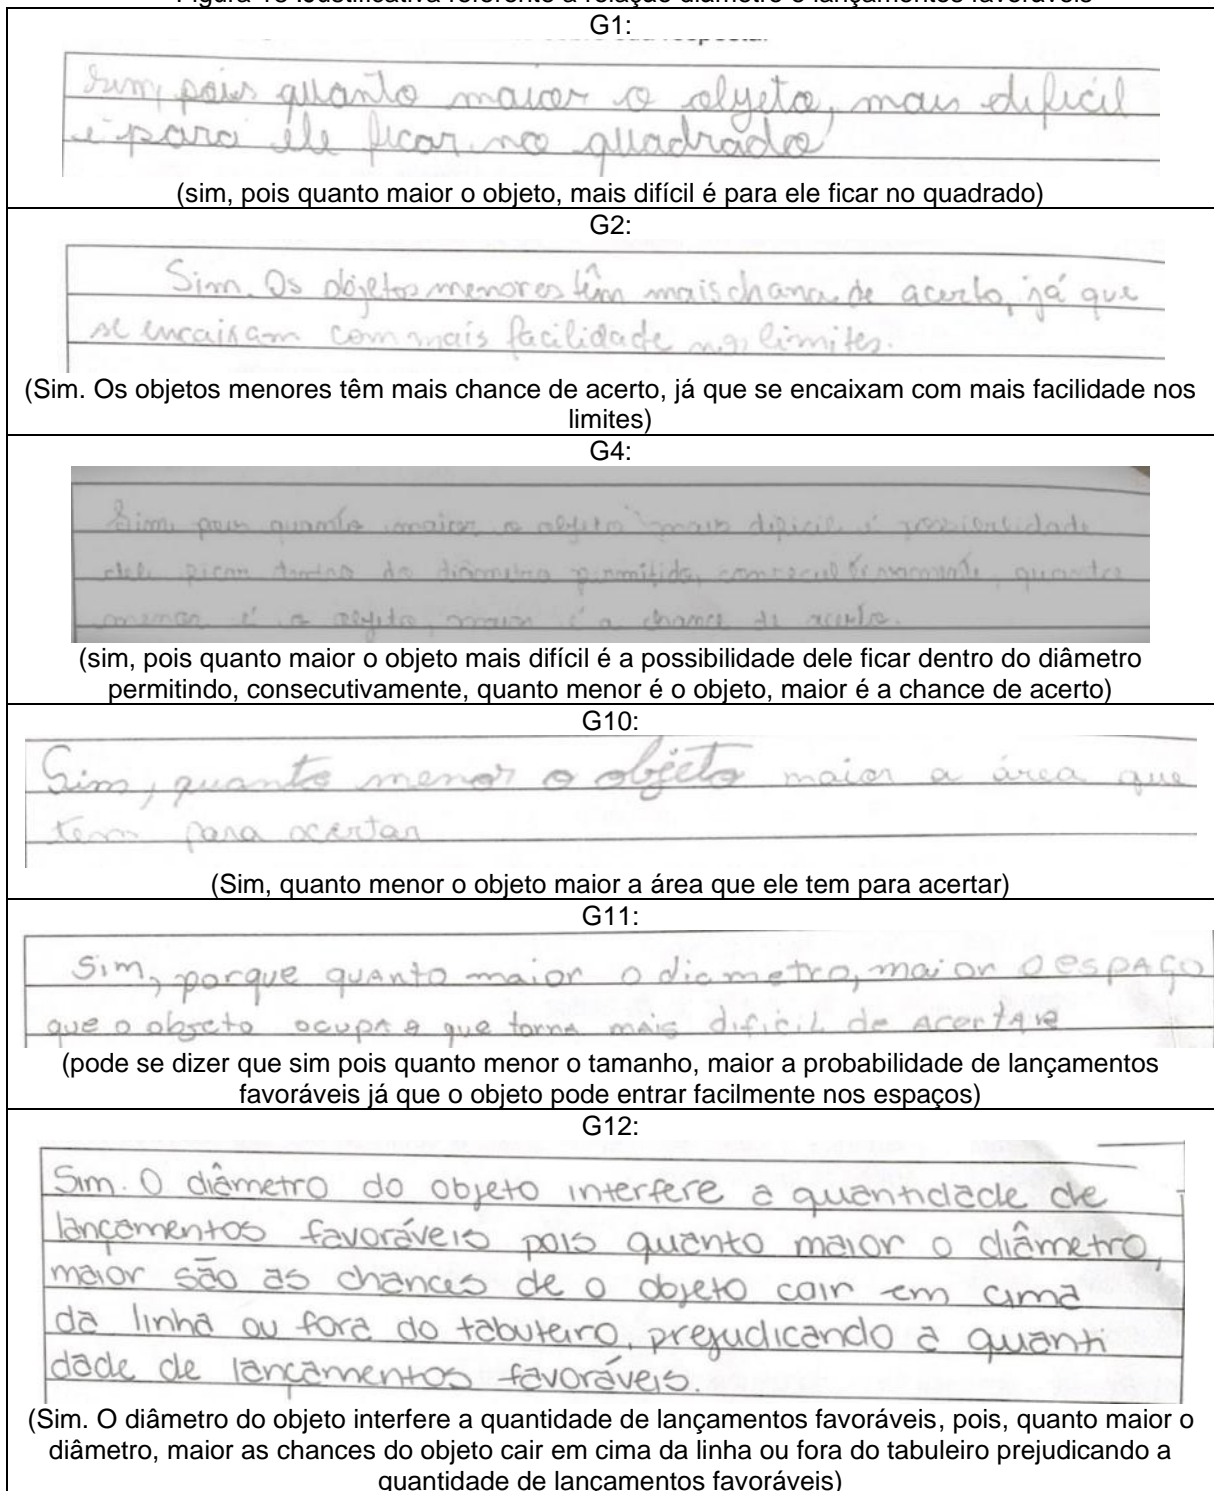 G1:
sim, pois quanto maior o objeto, mais dificil
é para ele ficar no quadrado
(sim, pois quanto maior o objeto, mais difícil é para ele ficar no quadrado)
G2:
Sim. Os objetos menores têm mais chance de acerto, já que
se encaixam com mais facilidade nos limites.
(Sim. Os objetos menores têm mais chance de acerto, já que se encaixam com mais facilidade nos
limites)
G4:
Sim, pois quanto maior o objeto mais dificil é possibilidade
dele ficar dentro do diâmetro permitido, quanto
menor é o objeto, maior é a chance de acerto.
(sim, pois quanto maior o objeto mais difícil é a possibilidade dele ficar dentro do diâmetro
permitindo, consecutivamente, quanto menor é o objeto, maior é a chance de acerto)
G10:
Sim, quanto menor o objeto maior a área que
tem para acertar
(Sim, quanto menor o objeto maior a área que ele tem para acertar)
G11:
Sim, porque quanto maior o diametro, maior o espaço
que o objeto ocupa e que torna mais dificil de acertar
(pode se dizer que sim pois quanto menor o tamanho, maior a probabilidade de lançamentos
favoráveis já que o objeto pode entrar facilmente nos espaços)
G12:
Sim. O diâmetro do objeto interfere a quantidade de
lançamentos favoráveis pois quanto maior o diâmetro,
maior são as chances de o objeto cair em cima
da linha ou fora do tabuleiro, prejudicando a quanti
dade de lançamentos favoráveis.
(Sim. O diâmetro do objeto interfere a quantidade de lançamentos favoráveis, pois, quanto maior o
diâmetro, maior as chances do objeto cair em cima da linha ou fora do tabuleiro prejudicando a
quantidade de lançamentos favoráveis)